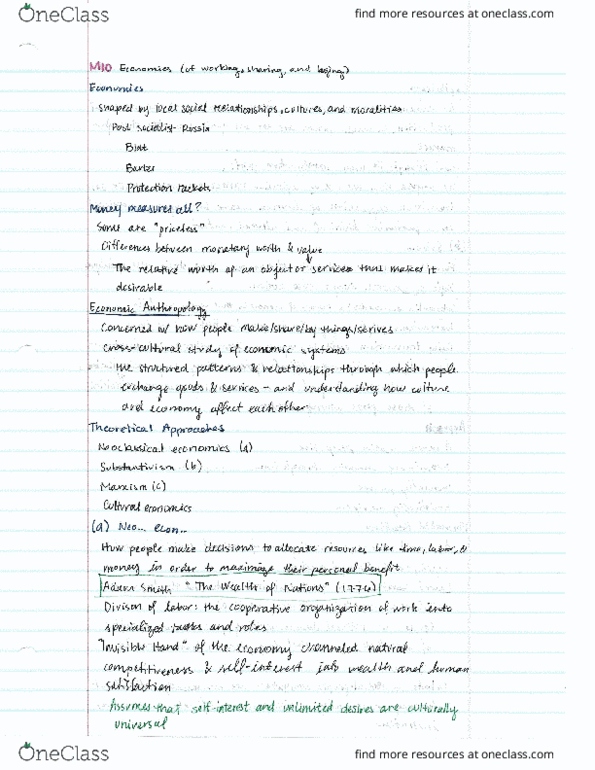 OneClass
find more resources at oneclass.com
M10 Economies (of working, sharing, and buying)
Economies
shaped by local social relationships, cultures, and moralities
Post socialist Russia
Blat
Barter
Protection rackets
Money measures all?
Some are "priceless"
Differences between monetary worth & value
The relative worth of an object or services that makes it
desirable
Economic Anthropology
Concerned w/ how people make/share/by things/serives
cross-cultural study of economic systems
the structured patterns & relationships through which people
exchange goods & services - and understanding how culture
and economy affect each other
Theoretical Approaches
Neoclassical economics (a)
Substantivism (b)
Marxism (c)
Cultural economics
(a) Neo... econ..
How people make decisions to allocate resources like time, labor, &
money in order to maximize their personal benefit
Adam Smith "The Wealth of Nations" (1776)
Division of labor: the cooperative organization of work into
specialized tasks and roles
"Invisible Hand" of the economy channeled natural
competitiveness & self-interest into wealth and human
satisfaction
Assumes that self-interest and unlimited desires are culturally
universal
OneClass
find more resources at oneclass.com